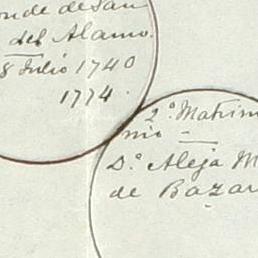 onde de San
del Alamo.
8 Julio 1740
1774.
2º Matrim
nio -
Dª Aleja M
de Bazar